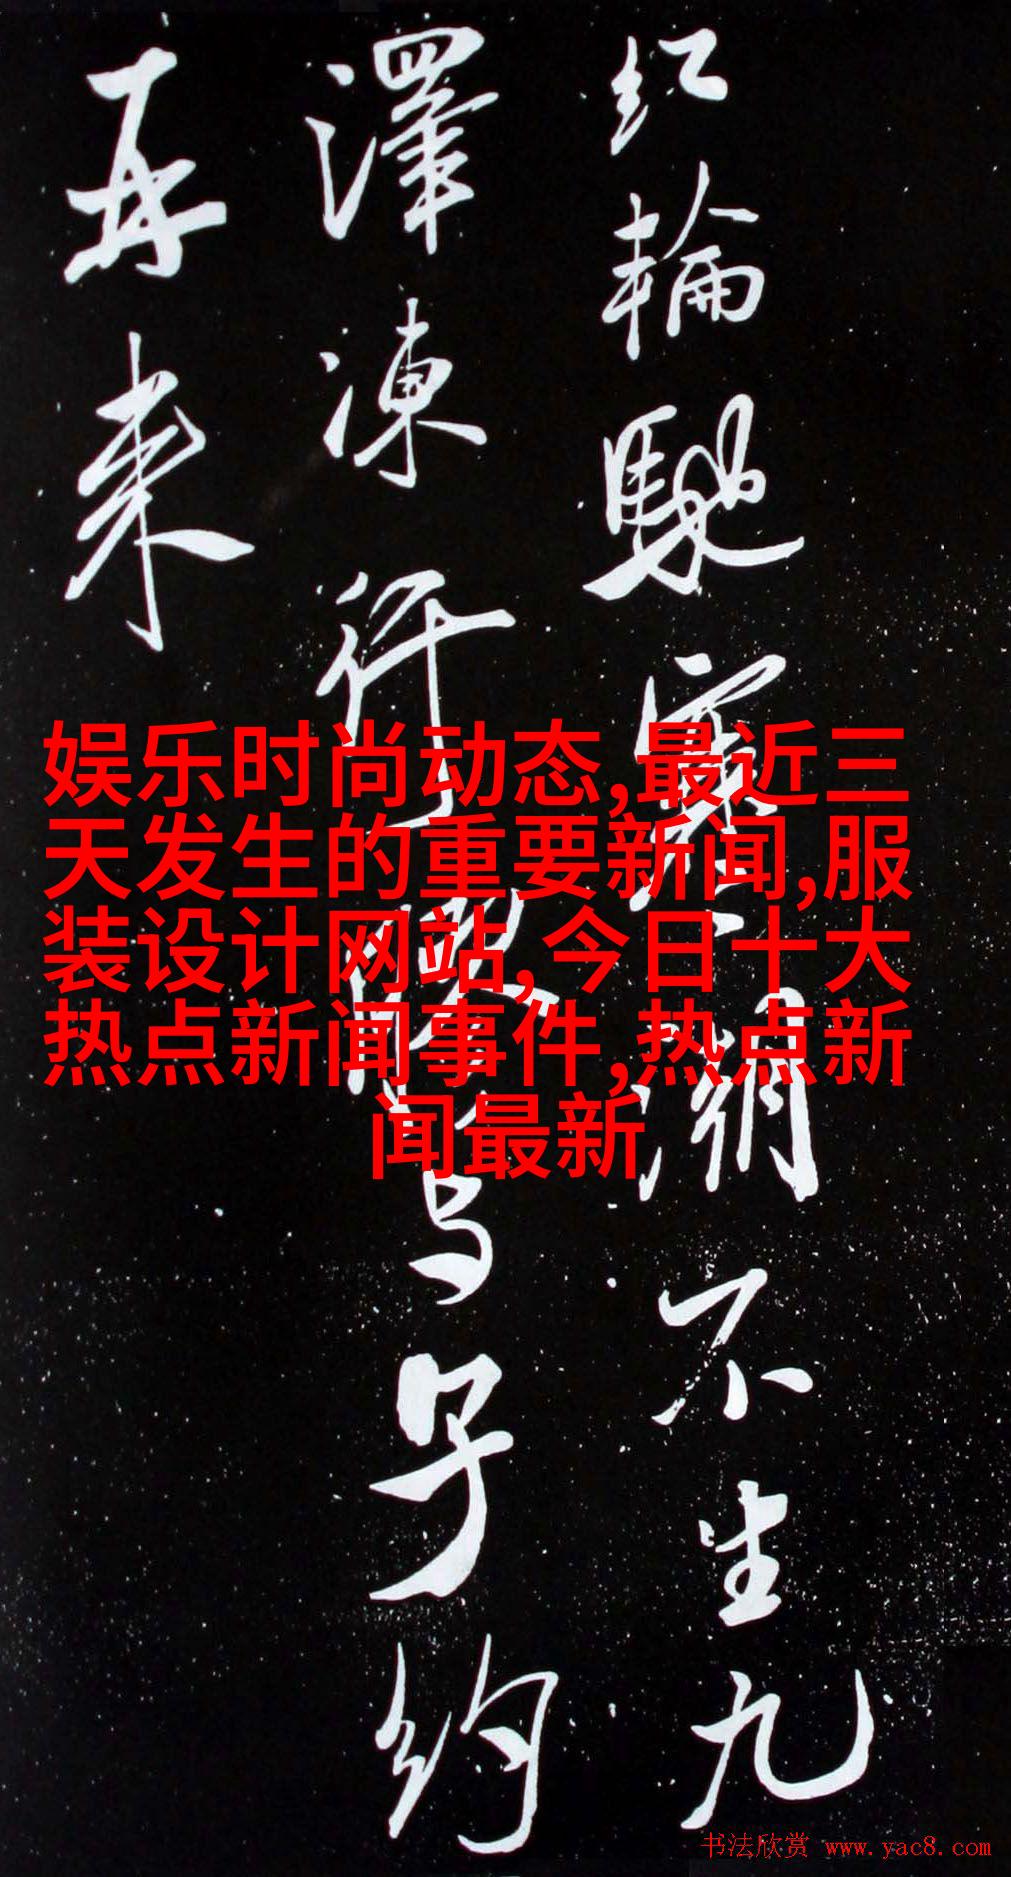 红轮驰寒潮不生九
澤凍行与子约
再来
娱乐时尚动态,最近三
天发生的重要新闻,服
装设计网站,今日十大
热点新闻事件,热点新
闻最新
书法欣赏 www.yac8.com